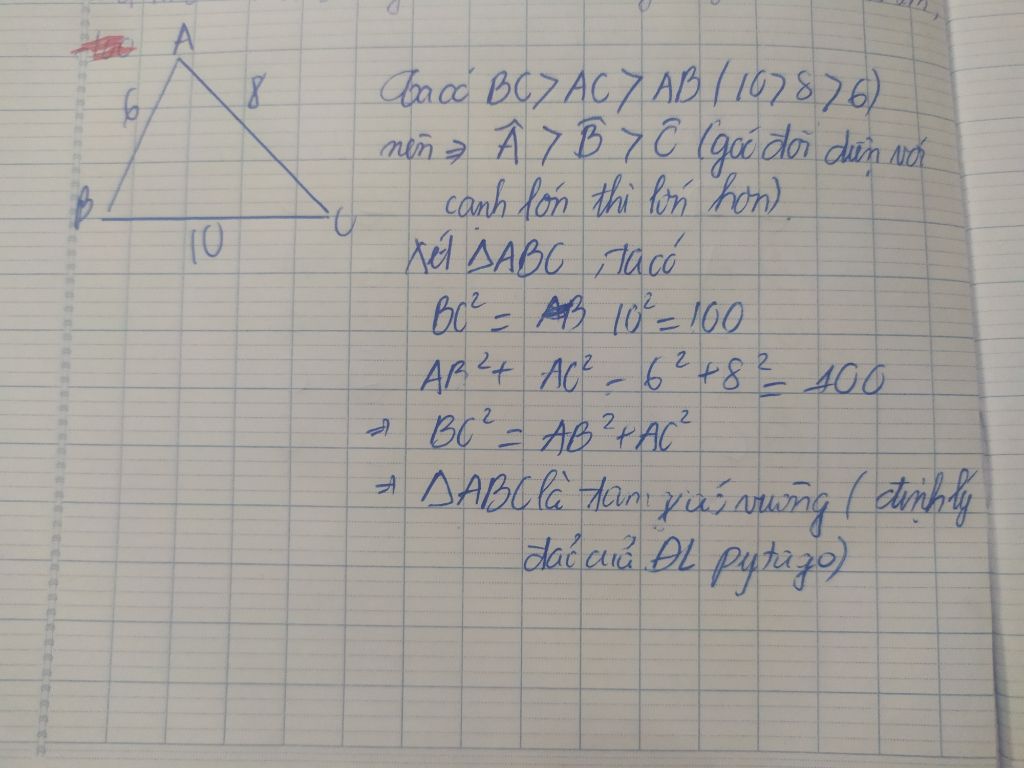 A
6
8
B
C
10
Ta có BC > AC > AB (10 > 8 > 6)
nên ⇒ Â > B̂ > Ĉ (góc đối diện với
cạnh lớn thì lớn hơn)
Xét ΔABC, ta có
BC² = 10² = 100
AB² + AC² = 6² + 8² = 100
⇒ BC² = AB² + AC²
⇒ ΔABC là tam giác vuông (định lý
đảo của ĐL pytago)